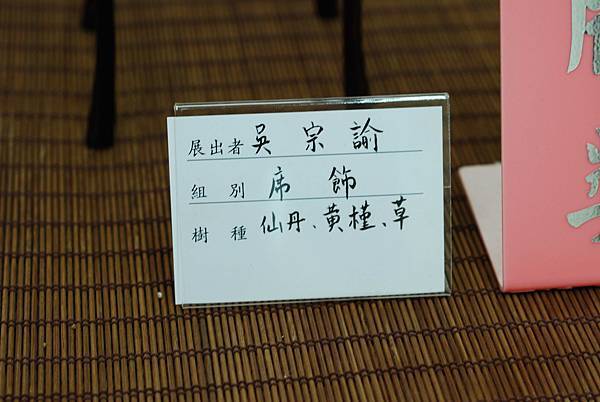 展出者 吳宗諭
組別 席飾
樹種 仙丹、黃槿、草